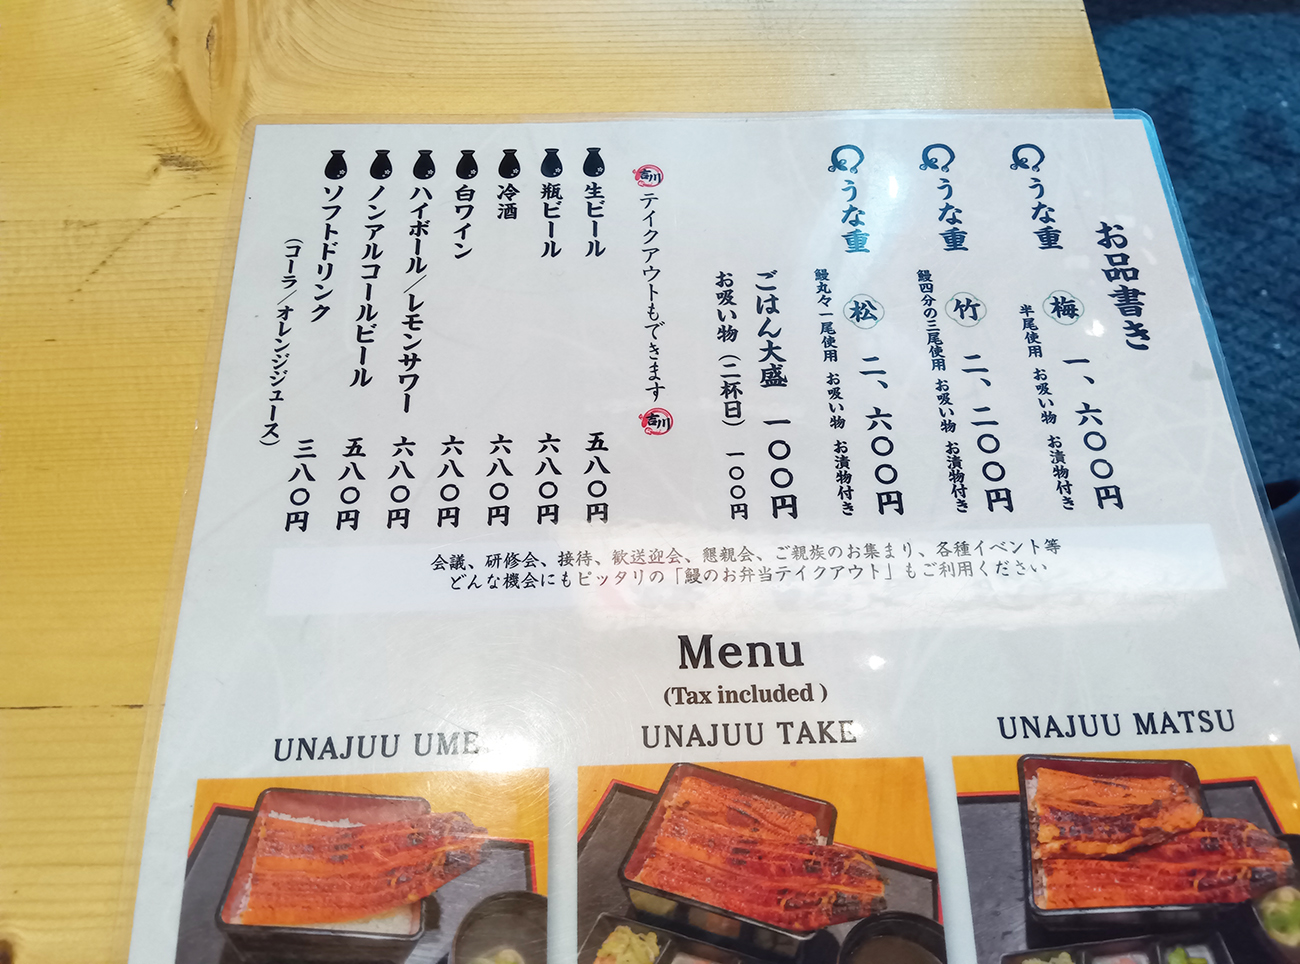 お品書き
うな重 梅 一、六〇〇円
半尾使用 お吸い物 お漬物付き
うな重 竹 二、二〇〇円
鰻四分の三尾使用 お吸い物 お漬物付き
うな重 松 二、六〇〇円
鰻丸々一尾使用 お吸い物 お漬物付き
ごはん大盛 一〇〇円
お吸い物（二杯目） 一〇〇円
吉川 テイクアウトもできます 吉川
生ビール 五八〇円
瓶ビール 六八〇円
冷酒 六八〇円
白ワイン 六八〇円
ハイボール／レモンサワー 六八〇円
ノンアルコールビール 五八〇円
ソフトドリンク 三八〇円
（コーラ／オレンジジュース）
会議、研修会、接待、歓送迎会、懇親会、ご親族のお集まり、各種イベント等
どんな機会にもピッタリの「鰻のお弁当テイクアウト」もご利用ください
Menu
(Tax included )
UNAJUU UME
UNAJUU TAKE
UNAJUU MATSU